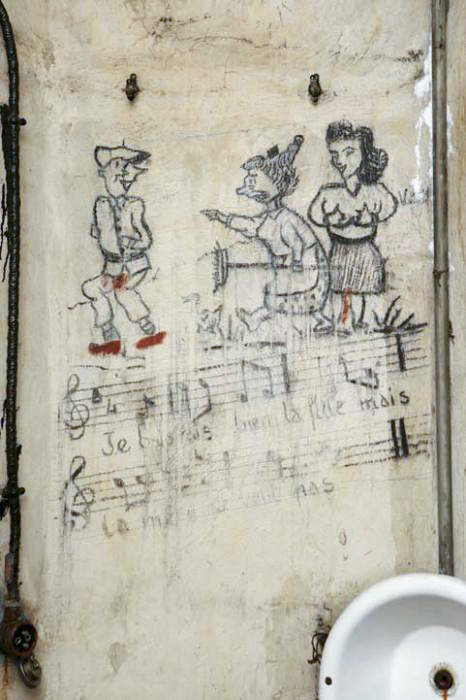 Je bien la fille mais
La mère ne veut pas